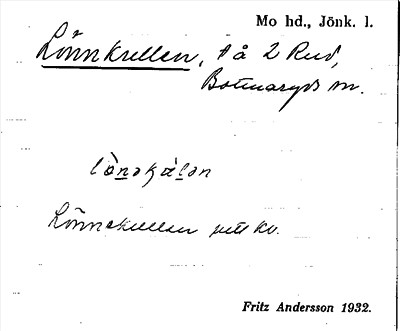 Mo hd., Jönk. l.
Lönnkullen, t å 2 Rud,
Bottnaryds sn.
Lönnekullen
Fritz Andersson 1932.